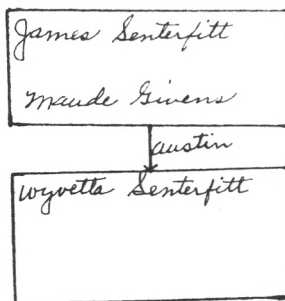 James Senterfitt
Maude Givens
austin
wyvetta Senterfitt